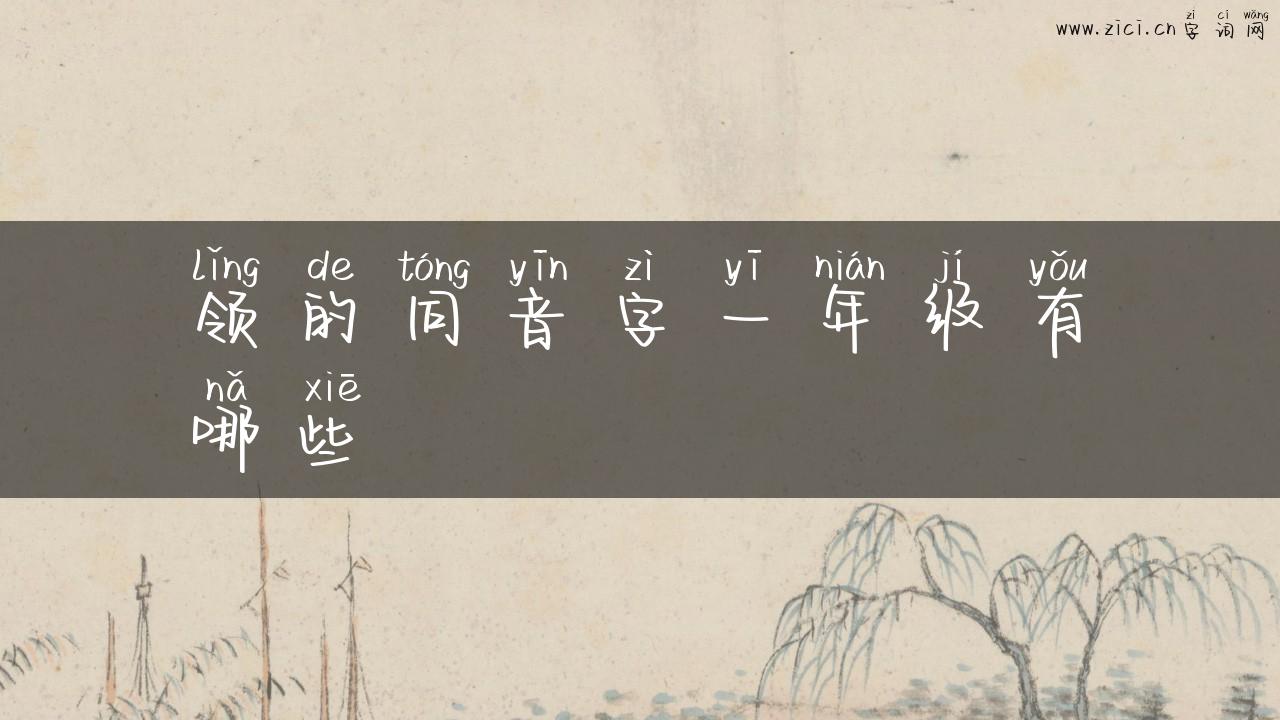 zì cí wǎng
www.zici.cn 字词网
lǐng de tóng yīn zì yī nián jí yǒu
领的同音字一年级有
nǎ xiē
哪些